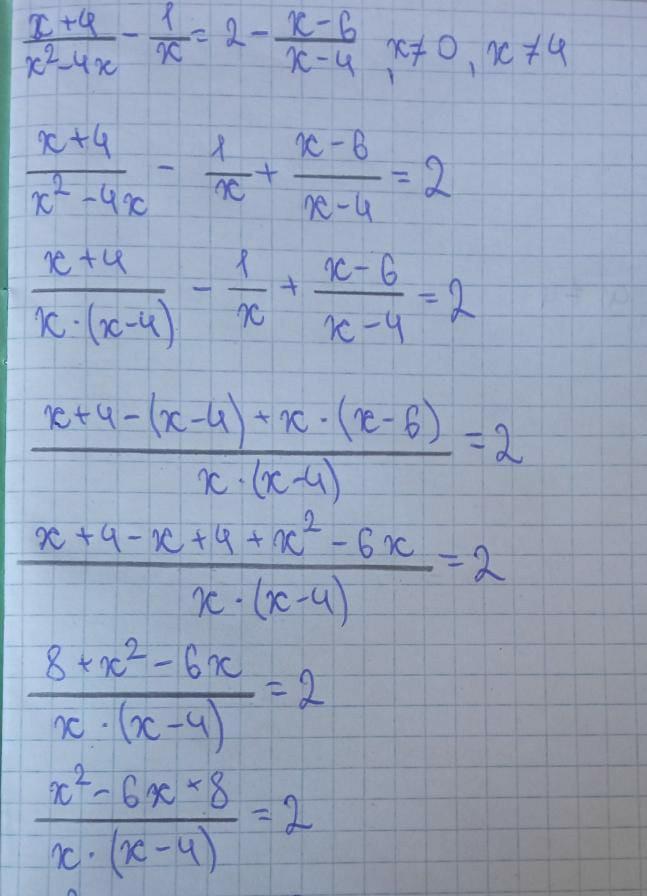 x+4/x²-4x - 1/x = 2 - x-6/x-4, x≠0, x≠4
x+4/x²-4x - 1/x + x-6/x-4 = 2
x+4/x·(x-4) - 1/x + x-6/x-4 = 2
x+4-(x-4)+x·(x-6)/x·(x-4) = 2
x+4-x+4+x²-6x/x·(x-4) = 2
8+x²-6x/x·(x-4) = 2
x²-6x+8/x·(x-4) = 2